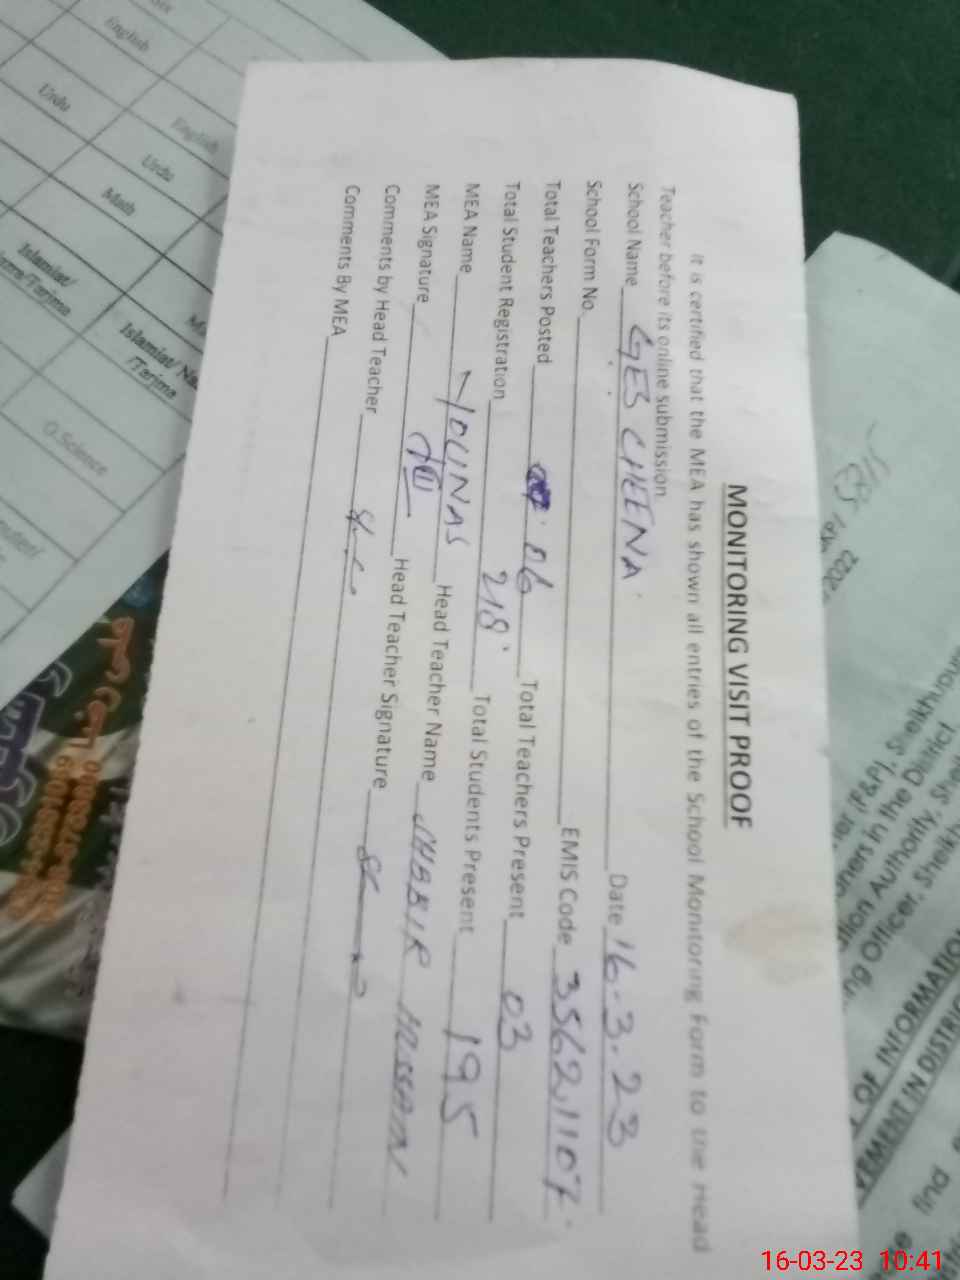 MONITORING VISIT PROOF
It is certified that the MEA has shown all entries of the School Monitoring Form to the Head
Teacher before its online submission.
School Name GES CHEENA Date 16.3.23
School Form No. EMIS Code 35621107
Total Teachers Posted 06 Total Teachers Present 03
Total Student Registration 218 Total Students Present 195
MEA Name YOUNAS Head Teacher Name SHABBIR HUSSAIN
MEA Signature Head Teacher Signature
Comments by Head Teacher
Comments By MEA
English
Urdu
English
Urdu
Math
Islamiat/
Islamiat/
/Tarjima
G.Science
2022
er (F&P), Sheikhupur
ners in the District
tion Authority, Sheik
ng Officer, Sheikh
OF INFORMATION
VEMENT IN DISTRIC
find
16-03-23 10:41